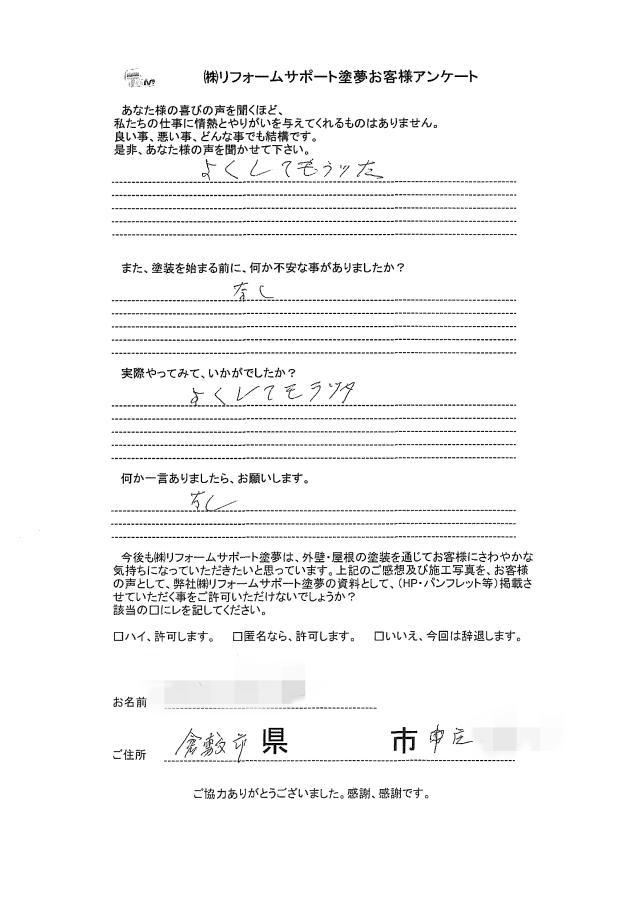 ㈱リフォームサポート塗夢お客様アンケート
あなた様の喜びの声を聞くほど、
私たちの仕事に情熱とやりがいを与えてくれるものはありません。
良い事、悪い事、どんな事でも結構です。
是非、あなた様の声を聞かせて下さい。
よくしてもらッた
また、塗装を始まる前に、何か不安な事がありましたか？
なし
実際やってみて、いかがでしたか？
よくしてモラッタ
何か一言ありましたら、お願いします。
なし
今後も㈱リフォームサポート塗夢は、外壁・屋根の塗装を通じてお客様にさわやかな
気持ちになっていただきたいと思っています。上記のご感想及び施工写真を、お客様
の声として、弊社㈱リフォームサポート塗夢の資料として、（HP・パンフレット等）掲載さ
せていただく事をご許可いただけないでしょうか？
該当の□にレを記してください。
□ハイ、許可します。 □匿名なら、許可します。 □いいえ、今回は辞退します。
お名前
ご住所 倉敷市 県 市 中庄
ご協力ありがとうございました。感謝、感謝です。